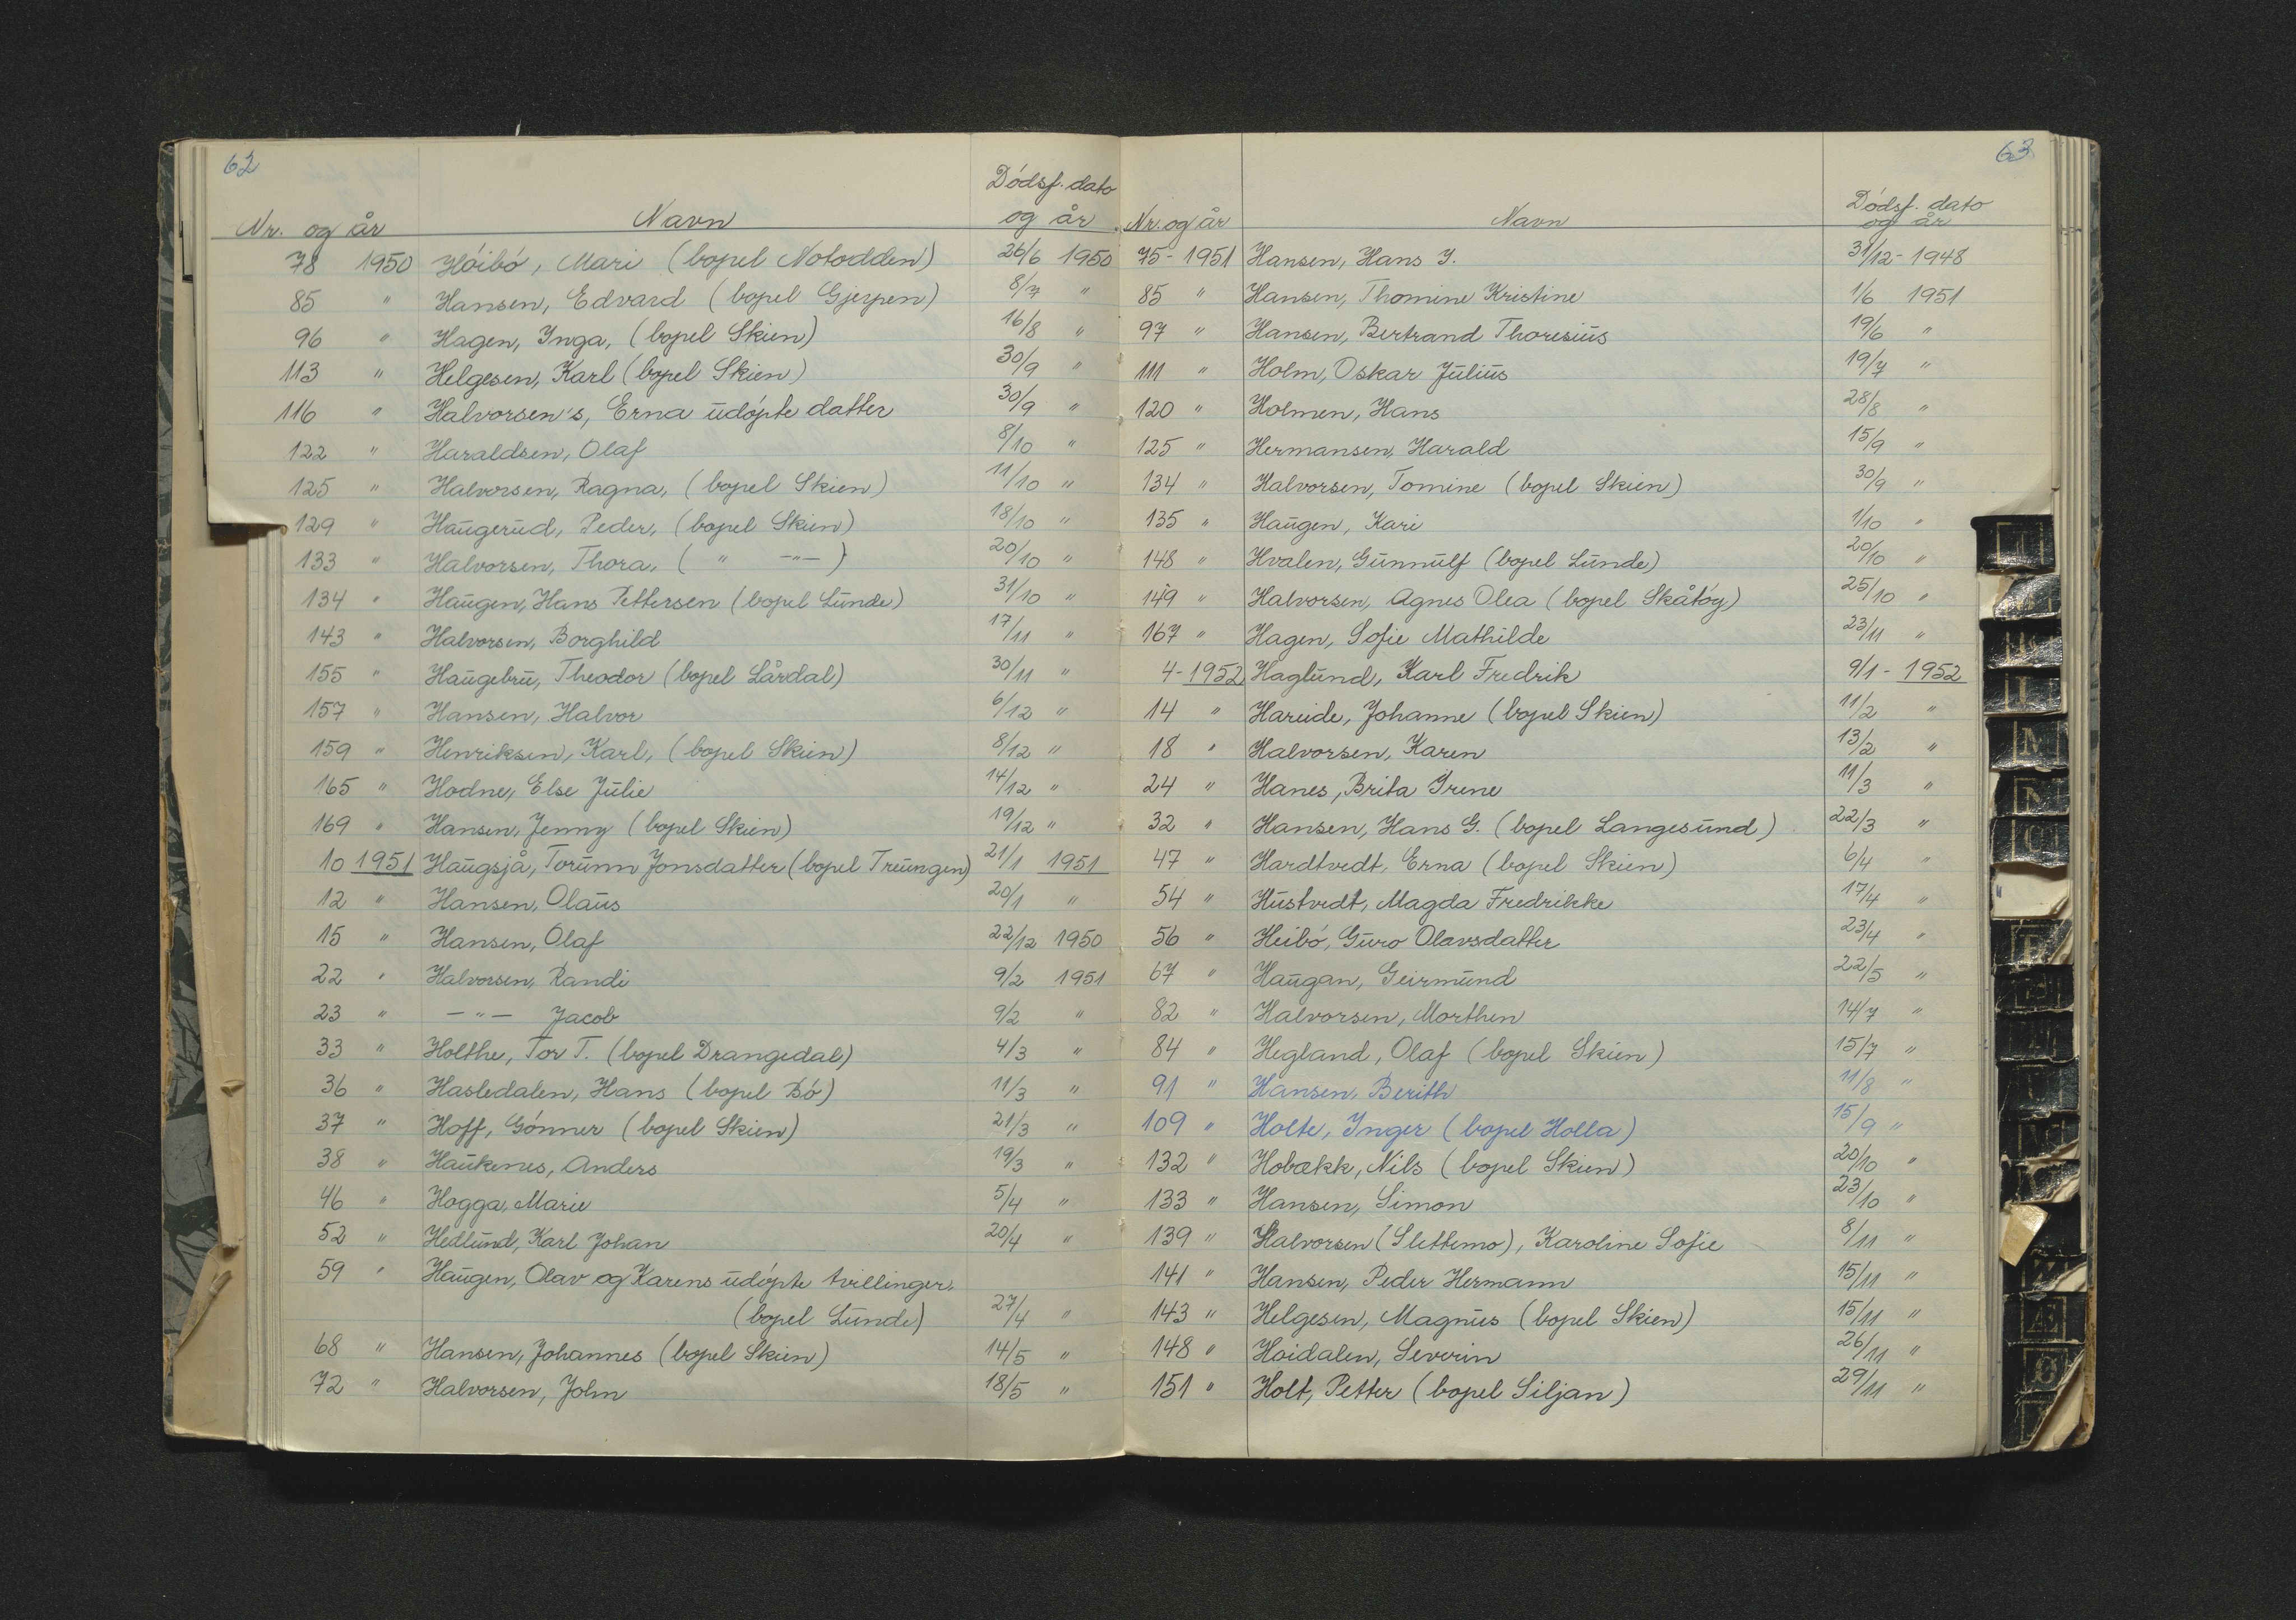 62
Dódsf. dato
Nr. og år Navn og år
78 1950 Hóibó, Mari (bopel Notodden) 26/6 1950
85 " Hansen, Edvard (bopel Gjerpen) 8/7 "
96 " Hagen, Ynga, (bopel Skien) 16/8 "
113 " Helgesen, Karl (bopel Skien) 30/9 "
116 " Halvorsen's, Erna udópte datter 30/9 "
122 " Haraldsen, Olaf 8/10 "
125 " Halvorsen, Ragna, (bopel Skien) 11/10 "
129 " Haugerud, Peder, (bopel Skien) 18/10 "
133 " Halvorsen, Thora, ( " —"— ) 20/10 "
134 " Haugen, Hans Pettersen (bopel Lunde) 31/10 "
143 " Halvorsen, Borghild 17/11 "
155 " Haugebru, Theodor (bopel Lårdal) 30/11 "
157 " Hansen, Halvor 6/12 "
159 " Henriksen, Karl, (bopel Skien) 8/12 "
165 " Hodne, Else Julie 14/12 "
169 " Hansen, Jenny (bopel Skien) 19/12 "
10 1951 Haugsjå, Torunn Jonsdatter (bopel Treungen) 21/1 1951
12 " Hansen, Olaus 20/1 "
15 " Hansen, Olaf 22/12 1950
22 " Halvorsen, Randi 9/2 1951
23 " —"— Jacob 9/2 "
33 " Holthe, Tor T. (bopel Drangedal) 4/3 "
36 " Hasledalen, Hans (bopel Bó) 11/3 "
37 " Hoff, Gónner (bopel Skien) 21/3 "
38 " Haukenes, Anders 19/3 "
46 " Hogga, Marie 5/4 "
52 " Hedlund, Karl Johan 20/4 "
59 " Haugen, Olav og Karens udópte tvillinger,
(bopel Lunde) 27/4 "
68 " Hansen, Johannes (bopel Skien) 14/5 "
72 " Halvorsen, John 18/5 "
63
Dódsf. dato
Nr. og år Navn og år
75 - 1951 Hansen, Hans Y. 31/12 - 1948
85 " Hansen, Thomine Kristine 1/6 1951
97 " Hansen, Bertrand Thoresius 19/6 "
111 " Holm, Oskar Julius 19/7 "
120 " Holmen, Hans 28/8 "
125 " Hermansen, Harald 15/9 "
134 " Halvorsen, Tomine (bopel Skien) 30/9 "
135 " Haugen, Kari 1/10 "
148 " Hvalen, Gunnulf (bopel Lunde) 20/10 "
149 " Halvorsen, Agnes Olea (bopel Skåtóy) 25/10 "
167 " Hagen, Sofie Mathilde 23/11 "
4 - 1952 Haglund, Karl Fredrik 9/1 - 1952
14 " Hareide, Johanne (bopel Skien) 11/2 "
18 " Halvorsen, Karen 13/2 "
24 " Hanes, Brita Irene 11/3 "
32 " Hansen, Hans G. (bopel Langesund) 22/3 "
47 " Hardtvedt, Erna (bopel Skien) 6/4 "
54 " Hustvedt, Magda Fredrikke 17/4 "
56 " Heibó, Guro Olavsdatter 23/4 "
67 " Haugan, Geirmund 22/5 "
82 " Halvorsen, Morthen 14/7 "
84 " Hegland, Olaf (bopel Skien) 15/7 "
91 " Hansen, Berith 11/8 "
109 " Holte, Ynger (bopel Holla) 15/9 "
132 " Hobækk, Nils (bopel Skien) 20/10 "
133 " Hansen, Simon 23/10 "
139 " Halvorsen (Slettemo), Karoline Sofie 8/11 "
141 " Hansen, Peder Hermann 15/11 "
143 " Helgesen, Magnus (bopel Skien) 15/11 "
148 " Hoidalen, Severin 26/11 "
151 " Holt, Petter (bopel Siljan) 29/11 "
M
N
O
Æ
Ø